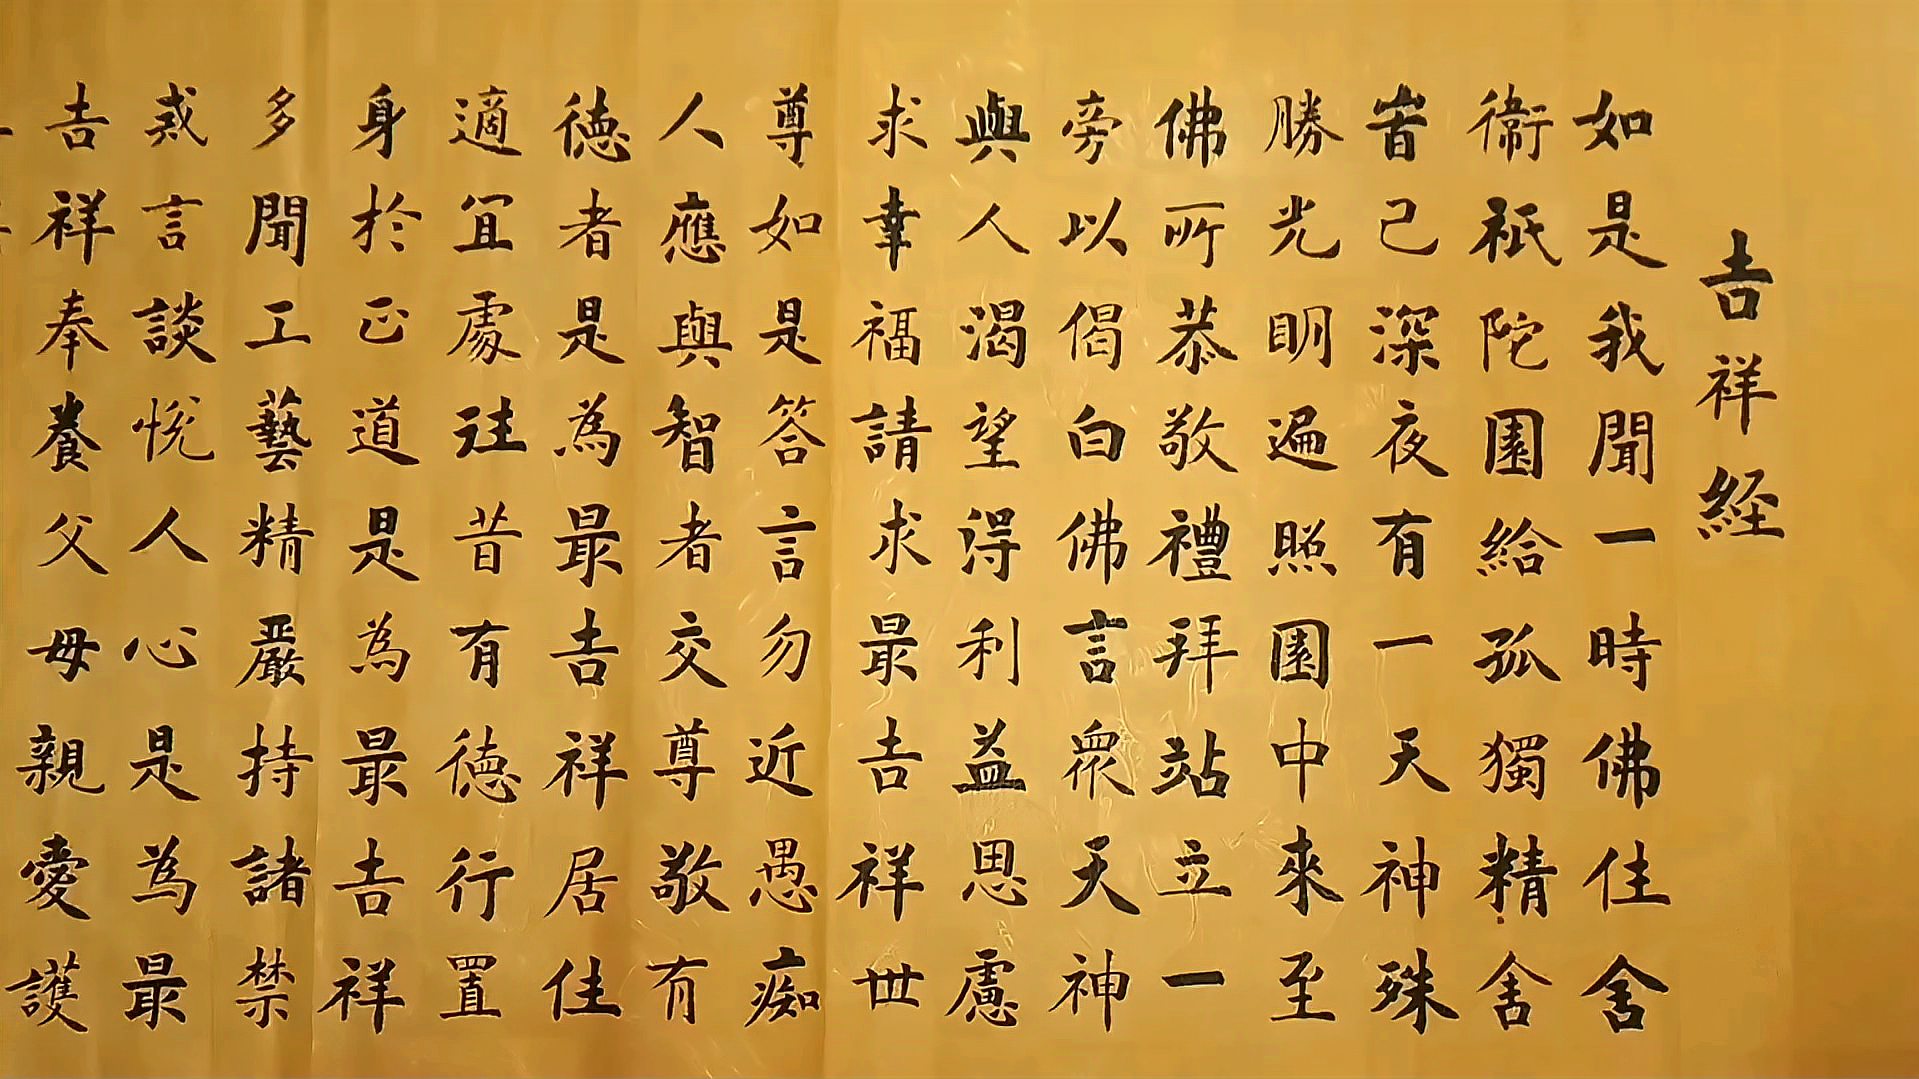 吉祥経
如是我聞一時佛住舍
衛祇陀園給孤獨精舍
旹已深夜有一天神殊
勝光明遍照園中來至
佛所恭敬禮拜站立一
旁以偈白佛言衆天神
與人渴望得利益思慮
求幸福請求最吉祥世
尊如是答言勿近愚痴
人應與智者交尊敬有
徳者是為最吉祥居住
適宜處往昔有徳行置
身於正道是為最吉祥
多聞工藝精嚴持諸禁
戒言談悅人心是為最
吉祥奉養父母親愛護